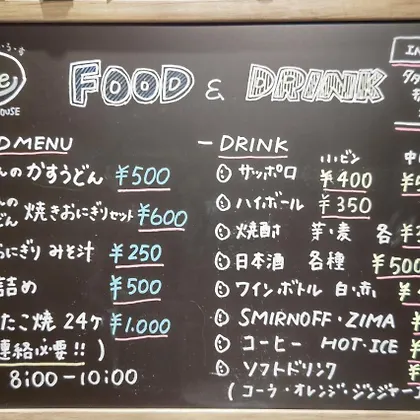 FOOD & DRINK
D MENU
んの かすうどん ¥500
焼きおにぎりセット ¥600
にぎり みそ汁 ¥250
詰め ¥500
たこ焼 24ケ ¥1.000
連絡必要!! )
8:00-10:00
- DRINK
小ビン 中
サッポロ ¥400
ハイボール ¥350
焼酎 芋・麦 各
日本酒 各種 ¥500
ワインボトル 白・赤
SMIRNOFF・ZIMA
コーヒー HOT・ICE
ソフトドリンク
(コーラ・オレンジ・ジンジャー